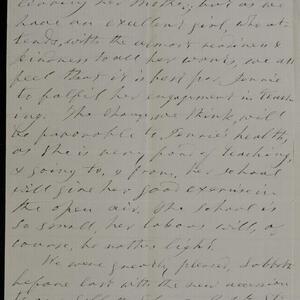 leaving her Mother, but as we
have an excellent girl, who at-
tends, with the utmost readiness &
kindness to all her wants, we all
feel that it is best for Jennie
to fulfil her engagement in teach-
ing. The change we think, will
be favorable to Jennie's health,
as she is very fond of teaching,
& going to, & from, her school
will give her good exercise in
the open air. The school is
so small, her labors will, of
course, be rather light.
We were greatly pleased, Sabbath
before last with the new accession
to our